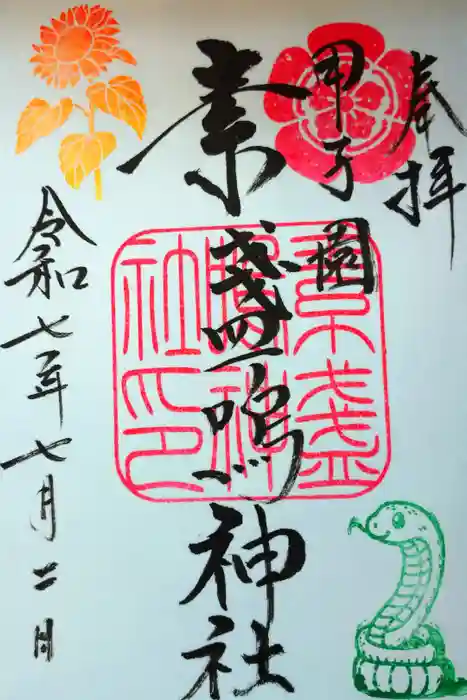 奉拝
甲子園
素盞嗚神社
令和七年七月二日
素盞
嗚神
社印